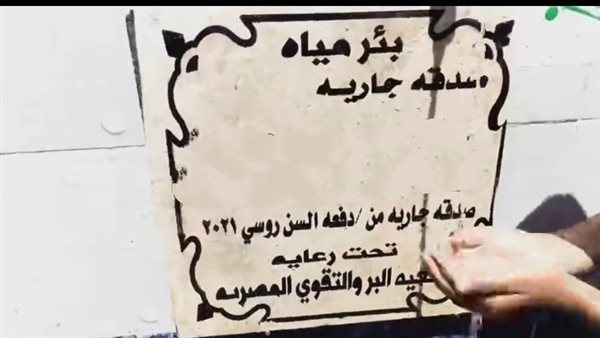 بئر مياه
صدقه جاريه
صدقه جاريه من / دفعه السن روسي ٢٠٢١
تحت رعايه
البر والتقوي المصريه